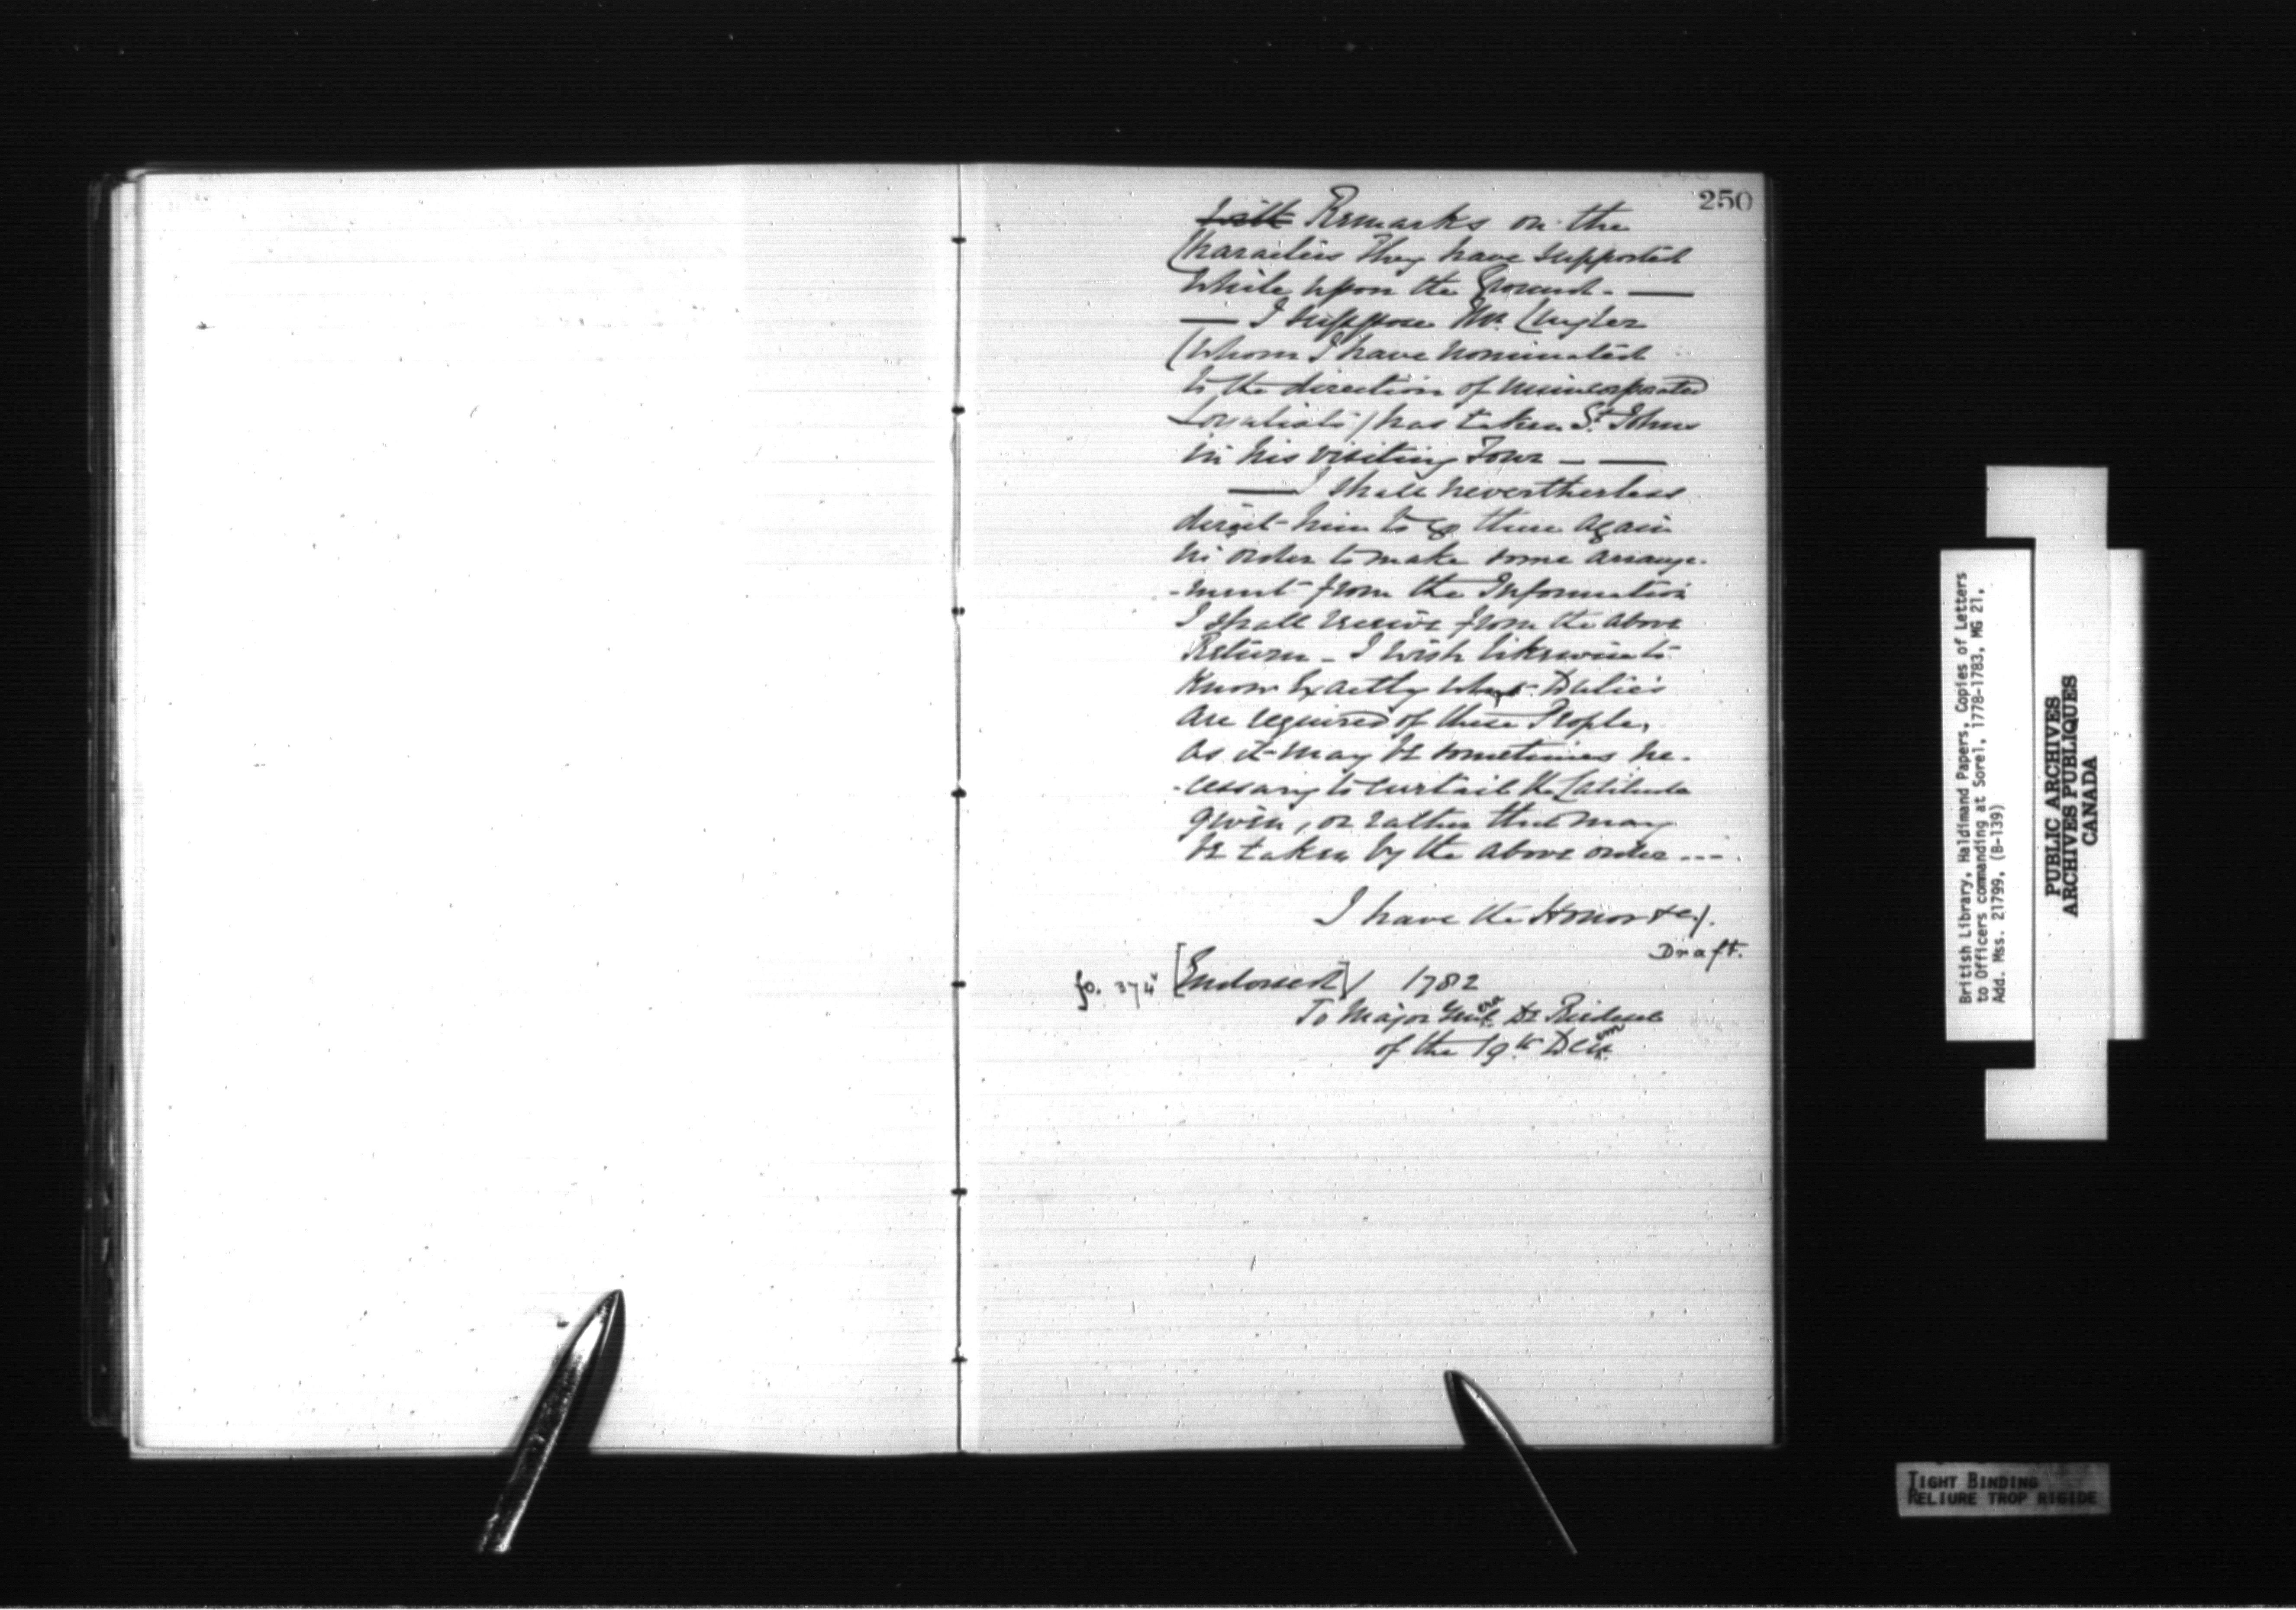 250
~~with~~ Remarks on the
Characters They have supported
While upon the Ground. —
— I suppose Mr. Cuyler
(Whom I have nominated
to the direction of unincorporated
Loyalists / has taken St. Johns
in his visiting Tour — —
— I shall nevertheless
direct him to go there again
in order to make some arrange-
-ment from the Information
I shall receive from the above
Return - I wish likewise to
Know Exactly what Duties
are required of these People,
as it may be sometimes ne-
-cessary to curtail the Latitude
given, or rather that may
be taken by the above order ...
I have the Honor &c/.
Draft.
fo. 374 [Endorsed] / 1782
To Major Genl. De Riedesel
of the 19th Decem
British Library, Haldimand Papers, Copies of Letters
to Officers commanding at Sorel, 1778-1783, MG 21,
Add. Mss. 21799, (B-139)
PUBLIC ARCHIVES
ARCHIVES PUBLIQUES
CANADA
TIGHT BINDING
RELIURE TROP RIGIDE